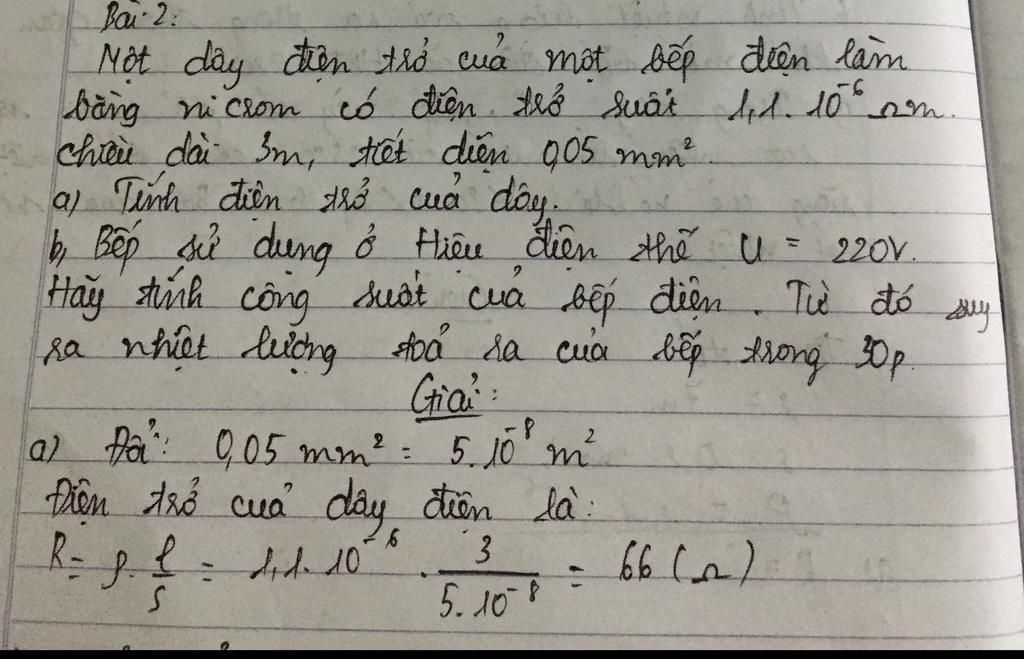 Bài 2:
Một dây điện trở của một bếp điện làm
bằng nicrom có điện trở suất 1,1.10⁻⁶ Ωm.
chiều dài 3m, tiết diện 0,05 mm².
a) Tính điện trở của dây.
b, Bếp sử dụng ở Hiệu điện thế U = 220V.
Hãy tính công suất của bếp điện. Từ đó suy
ra nhiệt lượng toả ra của bếp trong 30p.
Giải:
a) Đổi: 0,05 mm² = 5.10⁻⁸ m²
Điện trở của dây điện là:
R = ρ. l/s = 1,1.10⁻⁶ . 3/5.10⁻⁸ = 66 (Ω)